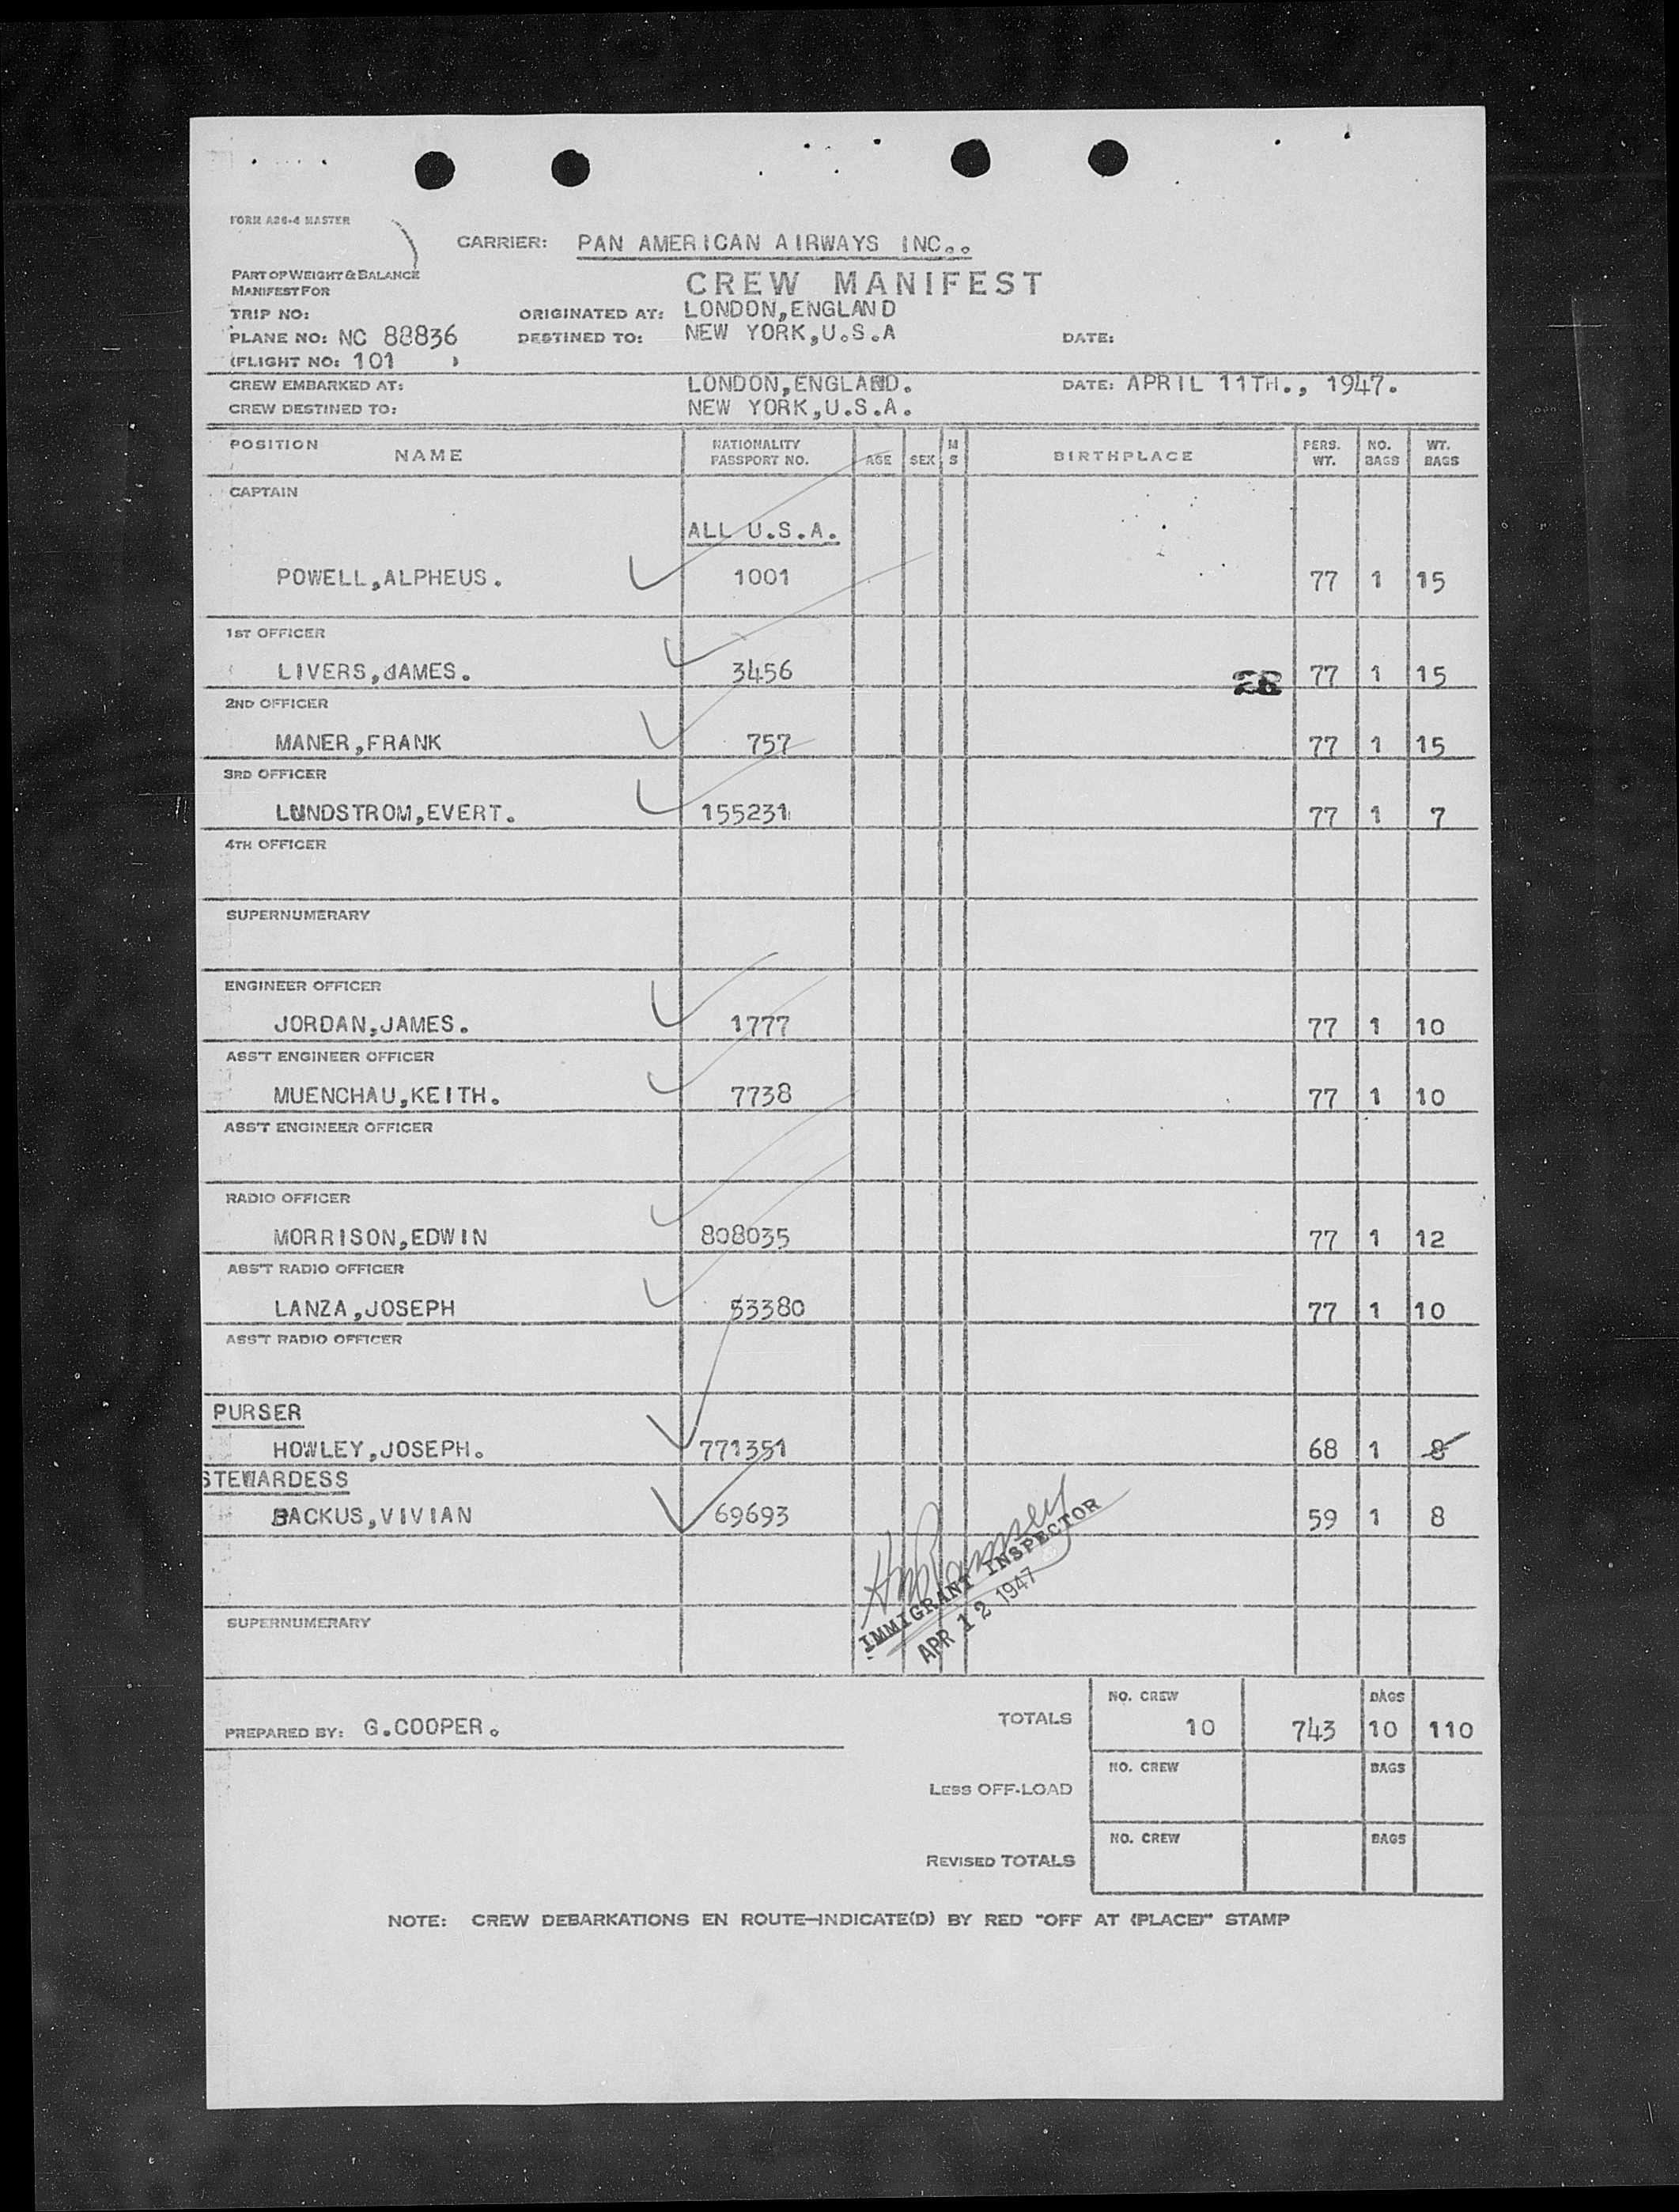 FORM A26-4 MASTER
CARRIER: PAN AMERICAN AIRWAYS INC..
PART OF WEIGHT & BALANCE
MANIFEST FOR
CREW MANIFEST
TRIP NO: ORIGINATED AT: LONDON,ENGLAND
PLANE NO: NC 88836 DESTINED TO: NEW YORK,U.S.A DATE:
(FLIGHT NO: 101 )
CREW EMBARKED AT: LONDON,ENGLAND. DATE: APRIL 11TH., 1947.
CREW DESTINED TO: NEW YORK,U.S.A.
POSITION NAME NATIONALITY PASSPORT NO. AGE SEX M S BIRTHPLACE PERS. WT. NO. BAGS WT. BAGS
CAPTAIN
ALL U.S.A.
POWELL,ALPHEUS. 1001 77 1 15
1ST OFFICER
LIVERS,JAMES. 3456 77 1 15
2ND OFFICER
MANER,FRANK 757 77 1 15
3RD OFFICER
LUNDSTROM,EVERT. 155231 77 1 7
4TH OFFICER
SUPERNUMERARY
ENGINEER OFFICER
JORDAN,JAMES. 1777 77 1 10
ASS'T ENGINEER OFFICER
MUENCHAU,KEITH. 7738 77 1 10
ASS'T ENGINEER OFFICER
RADIO OFFICER
MORRISON,EDWIN 808035 77 1 12
ASS'T RADIO OFFICER
LANZA,JOSEPH 53380 77 1 10
ASS'T RADIO OFFICER
PURSER
HOWLEY,JOSEPH. 771351 68 1 8
STEWARDESS
BACKUS,VIVIAN 69693 59 1 8
IMMIGRANT INSPECTOR
APR 12 1947
SUPERNUMERARY
NO. CREW BAGS
PREPARED BY: G.COOPER. TOTALS 10 743 10 110
NO. CREW BAGS
LESS OFF-LOAD
NO. CREW BAGS
REVISED TOTALS
NOTE: CREW DEBARKATIONS EN ROUTE—INDICATE(D) BY RED "OFF AT (PLACE)" STAMP